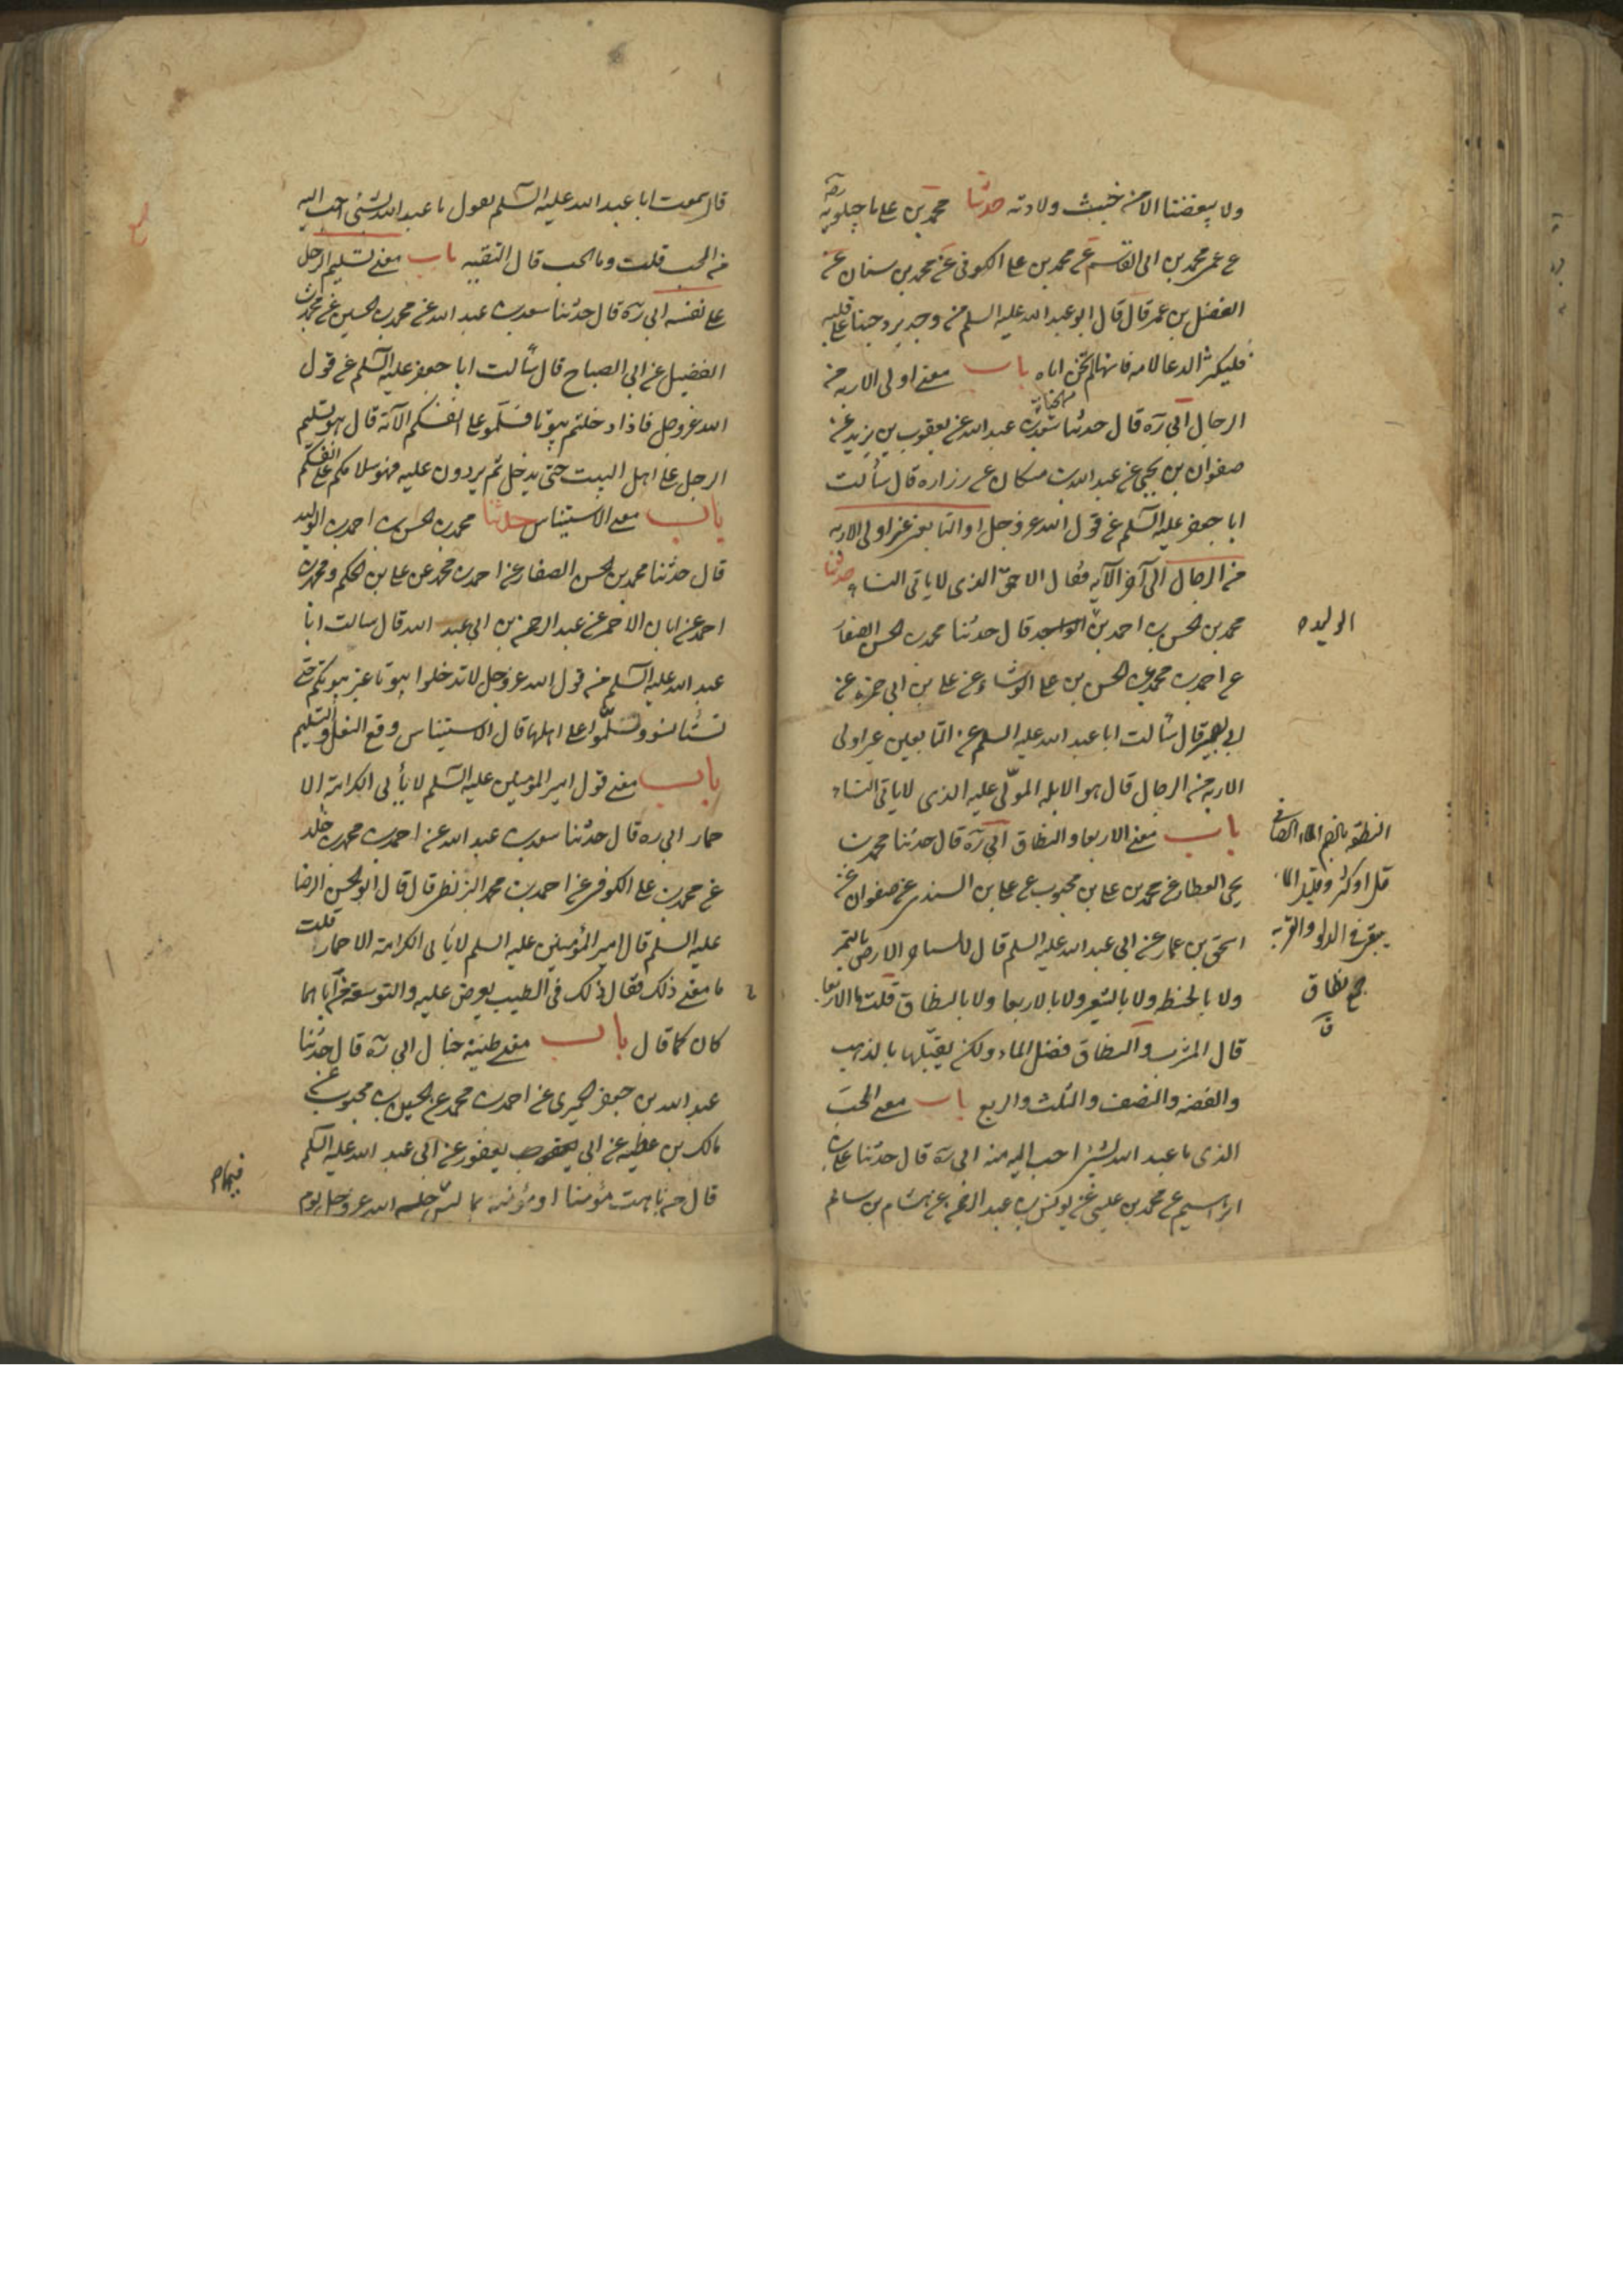 ولا يبغضنا الا من خبث ولادته حدثنا محمد بن على ماجيلويه ره
عن عمه محمد بن ابى القاسم عن محمد بن على الكوفى عن محمد بن سنان عن
المفضل بن عمر قال قال ابو عبد الله عليه السلم من وجد برد حبنا على قلبه
فليكثر الدعا لامه فانها لم تخن اباه باب معنى اولى الاربه من
الرجال ابى ره قال حدثنا سعد بن عبد الله عن يعقوب بن يزيد عن
صفوان بن يحيى عن عبد الله بن مسكان عن زراره قال سألت
ابا جعفر عليه السلم عن قول الله عز وجل او التابعين غير اولى الاربه
من الرجال الى آخر الآيه فقال الاحمق الذى لا ياتى النساء حدثنا
محمد بن الحسن بن احمد بن قال حدثنا محمد بن الحسن الصفار
الوليد
عن احمد بن محمد عن الحسن بن على الوشاء عن على بن ابى حمزه عن
ابى بصير قال سألت ابا عبد الله عليه السلم عن التابعين غير اولى
الاربه من الرجال قال هو الابله المولّى عليه الذى لا ياتى النساء
باب معنى الاربعا والنطاق ابى ره قال حدثنا محمد بن
يحيى العطار عن محمد بن على بن محبوب عن على بن السندى عن صفوان عن
اسحق بن عمار عن ابى عبد الله عليه السلم قال لا الارض بالتمر
ولا بالحنطه ولا بالشعير ولا بالاربعا ولا بالنطاق قلت ما الاربعا
قال الشرب والنطاق فضل الماء ولكن يقبّلها بالذهب
والفضه والنصف والثلث والربع باب معنى الخبّ
الذى ما عبد الله بشئ احب اليه منه ابى ره قال حدثنا على بن
ابراهيم عن محمد بن عيسى عن يونس بن عبد الرحمن عن هشام بن سالم
النطفة بالضم الماء الصافى
قل او كثر وقليل الماء
يبقى فى الدلو والقربه
ج نطاف
ق
قال سمعت ابا عبد الله عليه السلم يقول ما عبد الله بشئ احب اليه
من الخب قلت وما الخب قال التقيه باب معنى تسليم الرجل
على نفسه ابى ره قال حدثنا سعد بن عبد الله عن محمد بن الحسين عن محمد بن
الفضيل عن ابى الصباح قال سألت ابا جعفر عليه السلم عن قول
الله عز وجل فاذا دخلتم بيوتا فسلّموا على انفسكم الآية قال هو تسليم
الرجل على اهل البيت حتى يدخل ثم يردون عليه فهو سلامكم على انفسكم
باب معنى الاستيناس حدثنا محمد بن الحسن بن احمد بن الوليد
قال حدثنا محمد بن الحسن الصفار عن احمد بن محمد عن على بن الحكم ومحمد بن
احمد عن ابان الاحمر عن عبد الرحمن بن ابى عبد الله قال سالت ابا
عبد الله عليه السلم عن قول الله عز وجل لا تدخلوا بيوتا غير بيوتكم حتى
تستأنسوا وتسلّموا على اهلها قال الاستيناس وقع النعل والتسليم
باب معنى قول امير المؤمنين عليه السلم لا يأبى الكرامة الا
حمار ابى ره قال حدثنا سعد بن عبد الله عن احمد بن محمد بن خالد
عن محمد بن على الكوفى عن احمد بن محمد البزنطى قال قال ابو الحسن الرضا
عليه السلم قال امير المؤمنين عليه السلم لا يأبى الكرامة الا حمار قلت
ما معنى ذلك فقال ذلك فى الطيب يعرض عليه والتوسعة من اباهما
كان كما قال باب معنى طينة خبال ابى ره قال حدثنا
عبد الله بن جعفر الحميرى عن احمد بن محمد عن الحسن بن محبوب عن
مالك بن عطيه عن ابى يعفور عن ابى عبد الله عليه السلم
قال من باهت مؤمنا او مؤمنه بما ليس الله عز وجل يوم
فيهما